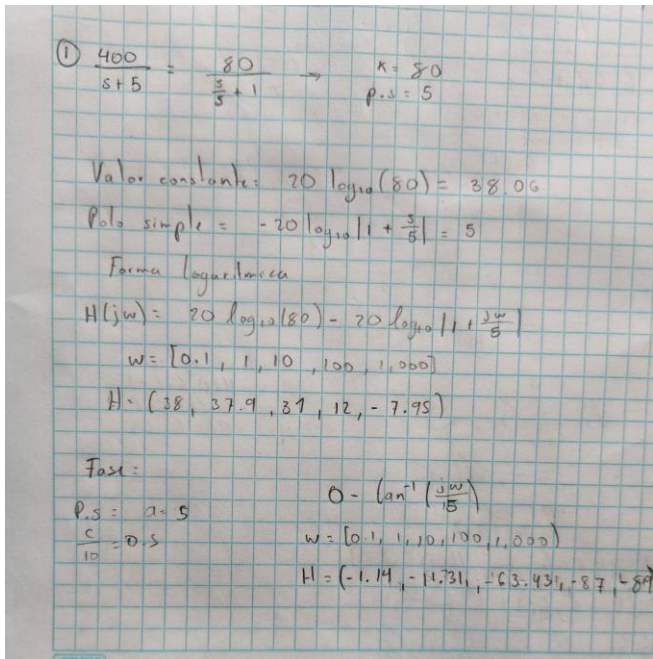 ① 400/(s+5) = 80/(s/5 + 1) → K = 80
p.s = 5
Valor constante: 20 log₁₀(80) = 38.06
Polo simple = -20 log₁₀|1 + s/5| = 5
Forma logaritmica
H(jw) = 20 log₁₀(80) - 20 log₁₀|1 + jw/5|
w = [0.1, 1, 10, 100, 1,000]
H = (38, 37.9, 31, 12, -7.95)
Fase:
0 - tan⁻¹(jw/5)
P.s = a = 5
c/10 = 0.5
w = [0.1, 1, 10, 100, 1,000)
H = (-1.14, -11.31, -63.43, -87, -89)